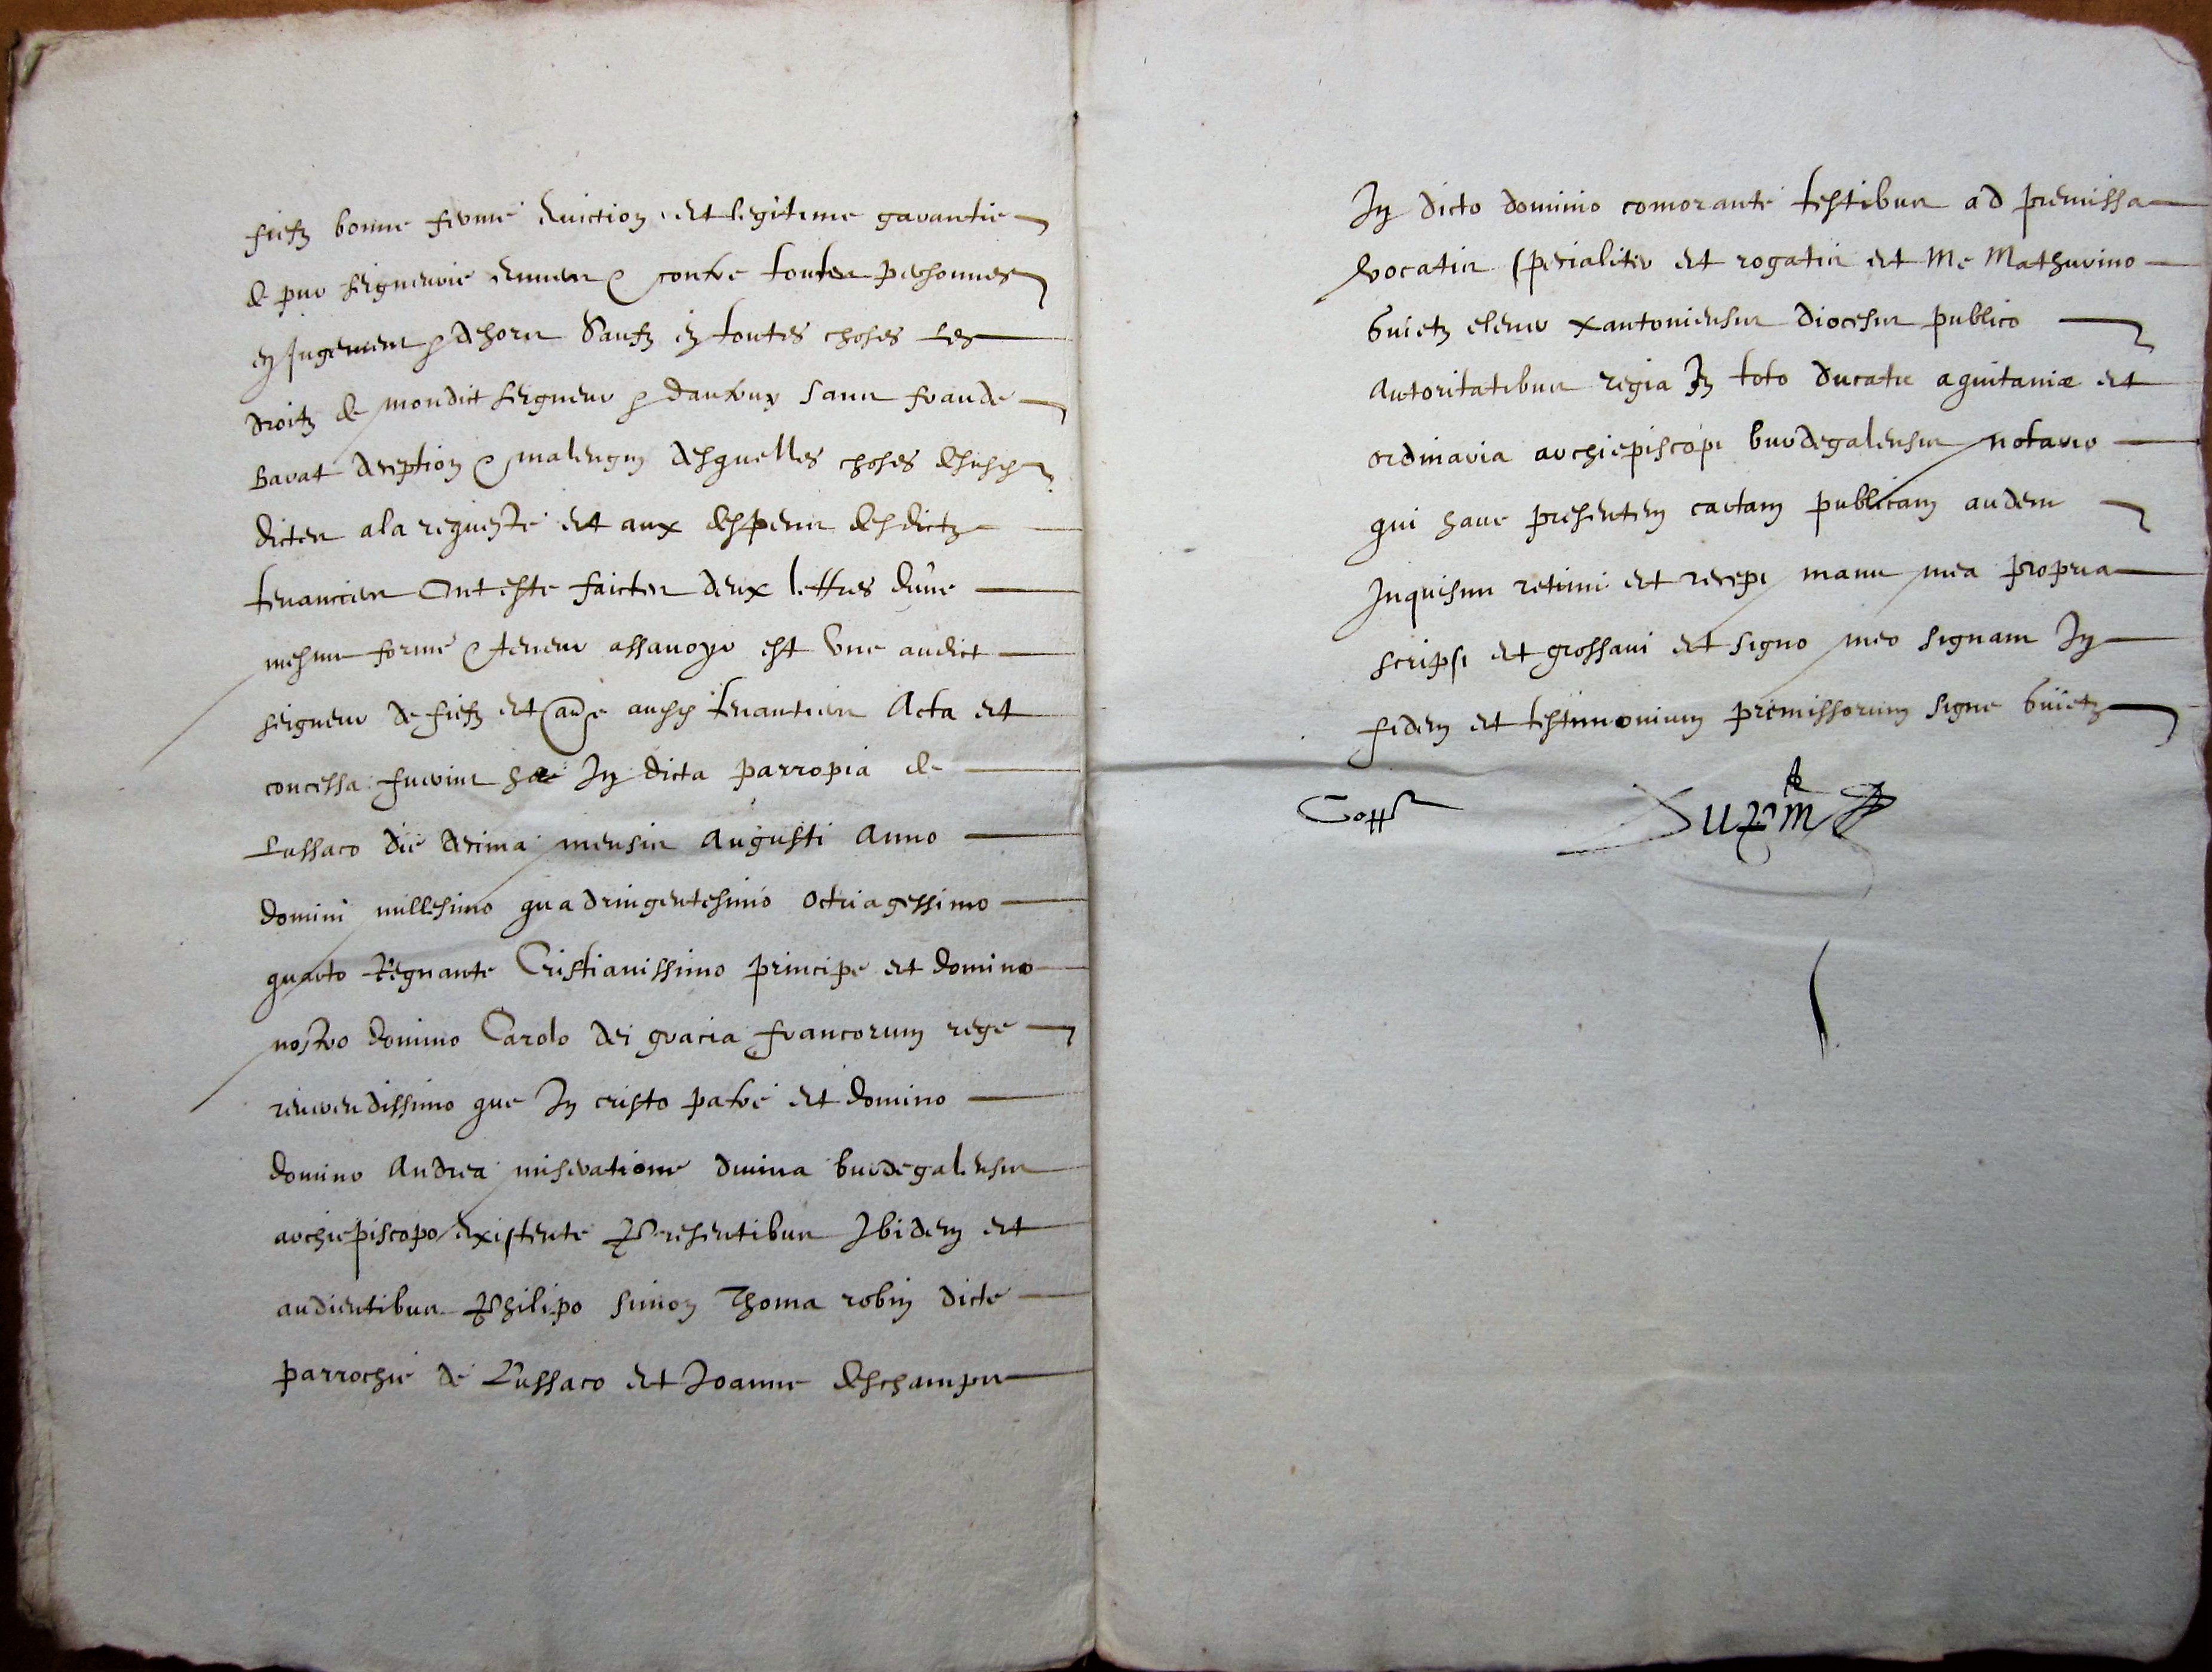 fiefz bonne ferme eviction et legitime garantie
de pur seigneurie envers & contre toutes personnes
en Jugement & dehors Saufz en toutes choses Les
droitz de mondict seigneur & dautruy sans fraude
barat deception & malengin desquelles choses dessus
dictes a la requeste et aux despens desdictz
tenanciers Ont este faictes deux lettres dune
mesme forme & teneur assavoyr est Une audict
seigneur de fiefz et aultre ausdictz tenantiers Acta et
concessa fuerunt hec In dicta parropia de
Lussaco die decima mensis Augusti Anno
domini millesimo quadringentesimo octuagessimo
quarto Regnante Cristianissimo principe et domino
nostro domino Carolo dei gracia francorum rege
reuerendissimo que In cristo patre et domino
domino Andrea miseratione diuina burdegalensis
archiepiscopo existente Presentibus Ibidem et
audientibus Philipo simon Thoma robin dicte
parrochie de Lussaco et Joanne deschamps
In dicto dominio comorante testibus ad premissa
vocatis specialiter et rogatis et Me Mathurino
Guietz clerico xantoniensis diocesis publico
autoritatibus regia In toto ducatu aquitaniæ et
ordinaria archiepiscopi burdegalensis notario
qui hanc presentem cartam publicam audiens
Inquisiui retinui et recepi manu mea propria
scripsi et grossaui et signo meo signaui In
fidem et testimonium premissorum signe Guietz